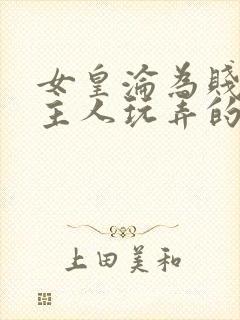 女皇淪為賤
主人玩弄的
上田美和